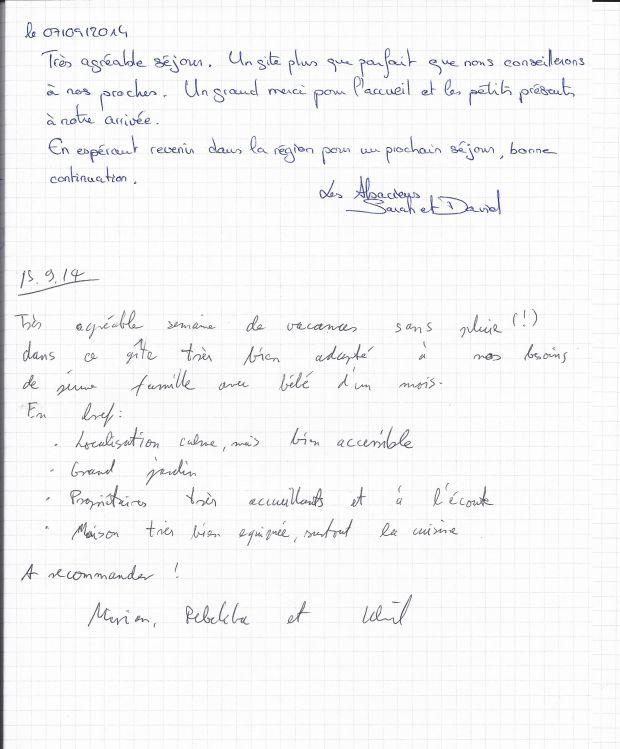 le 07/09/2014
Très agréable séjour. Un gite plus que parfait que nous conseillerons
à nos proches. Un grand merci pour l'accueil et les petits présents
à notre arrivée.
En espérant revenir dans la région pour un prochain séjour, bonne
continuation.
Les Alsaciens
Sarah et David
15.9.14
Très agréable semaine de vacances sans pluie (!)
dans ce gîte très bien adapté à nos besoins
de jeune famille avec bébé d'un mois.
En bref:
· Localisation calme, mais bien accessible
· Grand jardin
· Propriétaires très accueillants et à l'écoute
· Maison très bien equipée, surtout la cuisine
A recommander !
Rebekka et